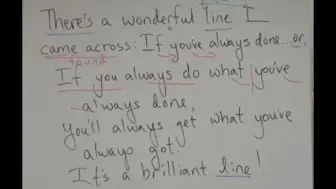 There's a wonderful line I
came across: If you've always done...or,
found
If you always do what you've
always done,
you'll always get what you've
always got.
It's a brilliant line!